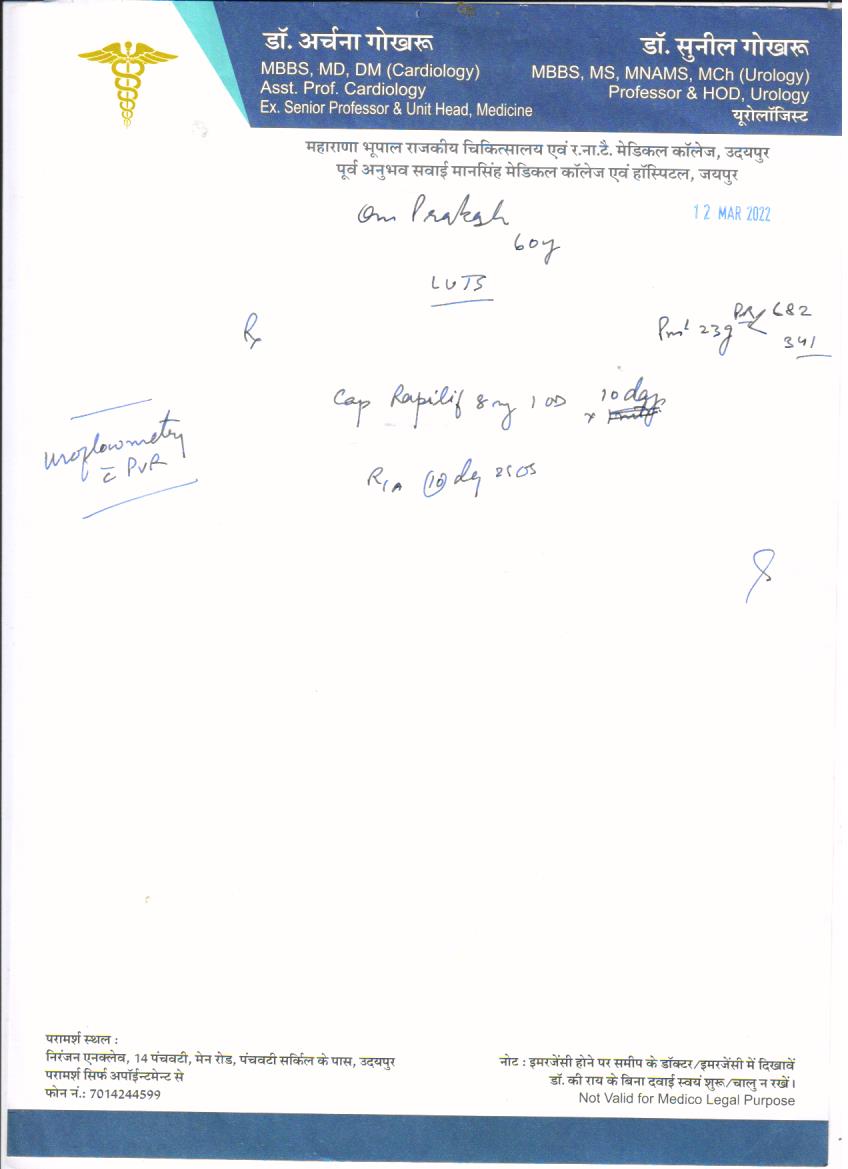 डॉ. अर्चना गोखरू
MBBS, MD, DM (Cardiology)
Asst. Prof. Cardiology
Ex. Senior Professor & Unit Head, Medicine
डॉ. सुनील गोखरू
MBBS, MS, MNAMS, MCh (Urology)
Professor & HOD, Urology
यूरोलॉजिस्ट
महाराणा भूपाल राजकीय चिकित्सालय एवं र.ना.टै. मेडिकल कॉलेज, उदयपुर
पूर्व अनुभव सवाई मानसिंह मेडिकल कॉलेज एवं हॉस्पिटल, जयपुर
12 MAR 2022
Om Prakash
60y
LUTS
Rx
23g 682
341
Cap Rapilif 8mg 1 OD x 10 days
uroflowmetry
c̄ PVR
R/A (10)
परामर्श स्थल :
निरंजन एनक्लेव, 14 पंचवटी, मेन रोड, पंचवटी सर्किल के पास, उदयपुर
परामर्श सिर्फ अपॉईन्टमेन्ट से
फोन नं.: 7014244599
नोट : इमरजेंसी होने पर समीप के डॉक्टर/इमरजेंसी में दिखावें
डॉ. की राय के बिना दवाई स्वयं शुरू/चालु न रखें।
Not Valid for Medico Legal Purpose